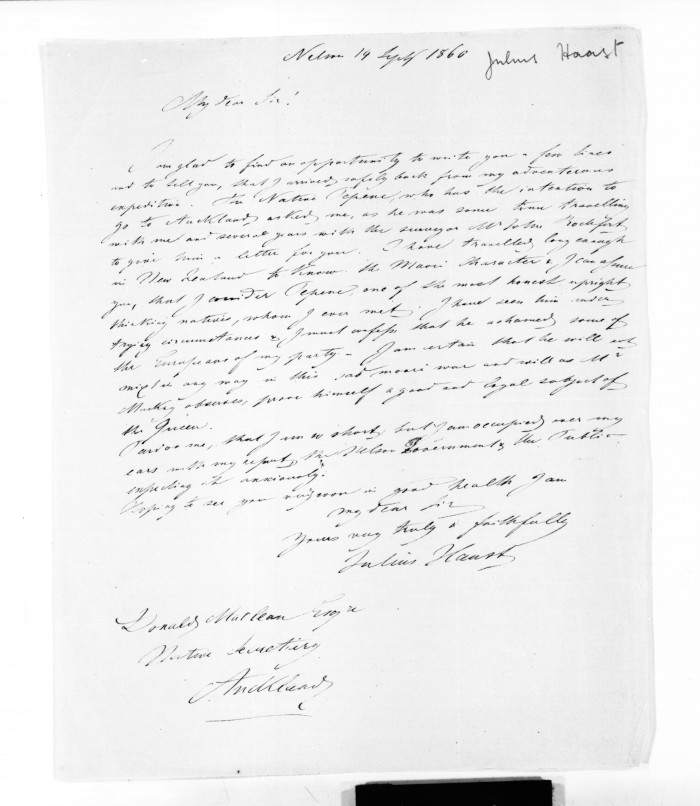 Nelson 14 Septbr 1860
Julius Haast
My dear Sir!
I am glad to find an opportunity to write you a few lines
and to tell you, that I arrived safely back from my adventerous
expedition. The Native Tepene, who has the intention to
go to Auckland, asked me, as he was some time travelling
with me and several years with the surveyor Mr John Rochfort
to give him a letter for you. I have travelled long enough
in New Zealand to know the Maori character & I can assure
you, that I consider Tepene one of the most honest upright
thinking natives, whom I ever met. I have seen him under
trying circumstances & I must confess that he ashamed some of
the Europeans of my party - I am certain that he will not
mix in any way in this sad maori war and will as Mr
Mackay observes, prove himself a good and loyal subject of
the Queen.
Pardon me, that I am so short, but I am occupied over my
ears with my report, the Nelson Government & the Public
expecting it anxiously.
Hoping to see you very soon in good health I am
my dear Sir
Yours very truly & faithfully
Julius Haast
Donald MacLean Esqre
Native Secretary
Auckland